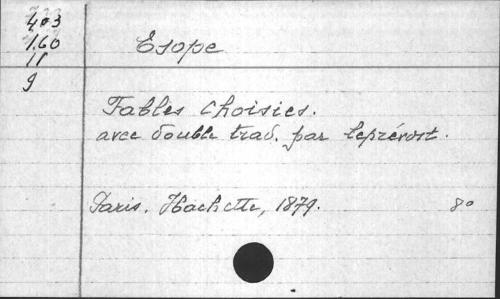 403
160
11
9
Esope
Fables choisies.
avec double trad. par Leprévost.
Paris. Hachette, 1879. 8o